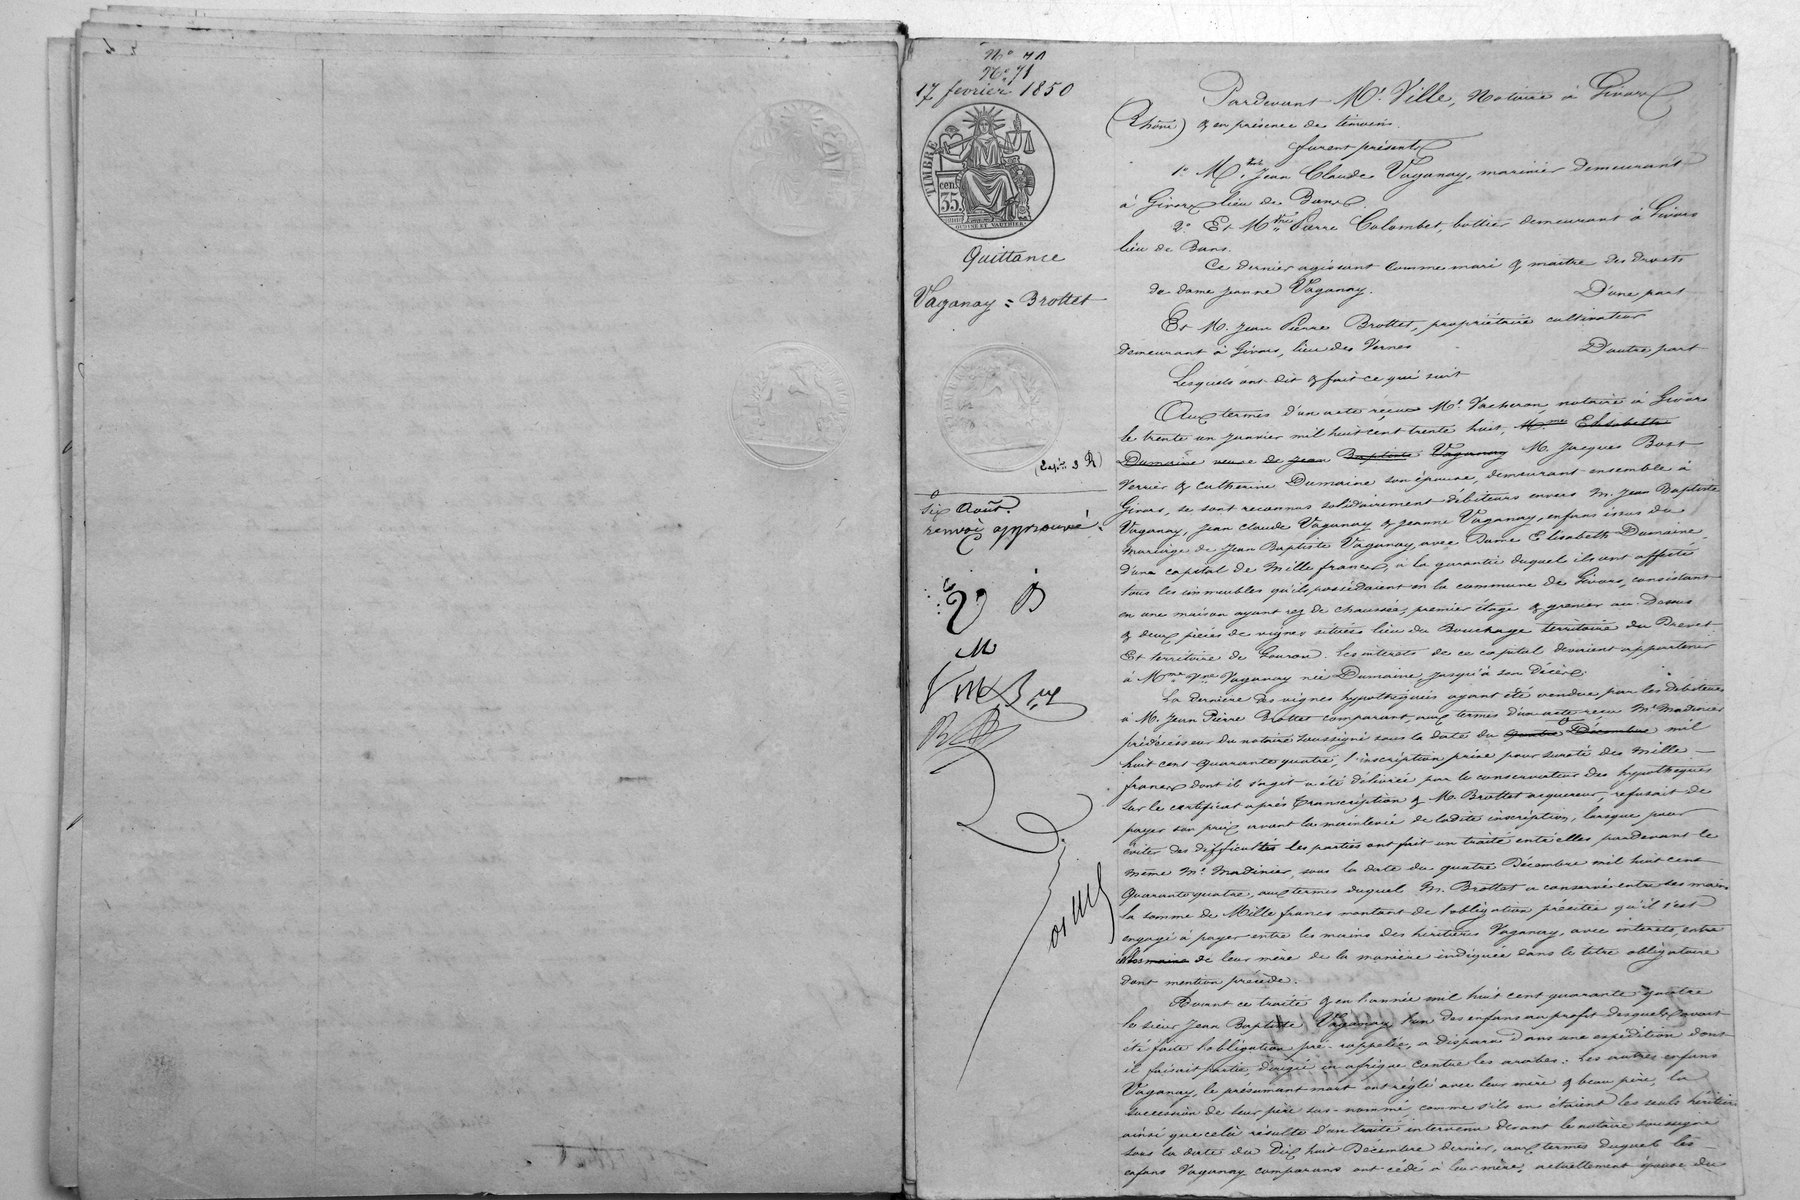 N° 71
N° 71
17 fevrier 1850
TIMBRE
cen.
35.
OUDINÉ ET VAUTHIER
Quittance
Vaganay = Brottet
six Août.
renvoi approuvé.
B
M
Pardevant Me. Ville, Notaire à Givors
(Rhône) & en présence des témoins.
furent présents
1° M. Jean Claude Vaganay, marinier demeurant
à Givors lieu de Bans.
2° Et M. Pierre Colombet, bottier demeurant à Givors
lieu de Bans.
Ce dernier agissant comme mari & maitre des droits
de dame Jeanne Vaganay. D'une part
Et M. Jean Pierre Brottet, propriétaire cultivateur
demeurant à Givors, lieu des Vernes D'autre part
Lesquels ont dit & fait ce qui suit
Aux termes d'un acte reçu Me. Vacheron, notaire à Givors
le trente un Janvier mil huit cent trente huit, Mme Elisabeth
Dumaine veuve de Jean Baptiste Vaganay M. Jacques Bost
Verrier & Catherine Dumaine son épouse, demeurant ensemble à
Givors, se sont reconnus solidairement débiteurs envers M. Jean Baptiste
Vaganay, Jean Claude Vaganay & Jeanne Vaganay, enfans issus du
mariage de Jean Baptiste Vaganay avec Dame Elisabeth Dumaine
d'un capital de Mille francs, à la garantie duquel ils ont affecté
tous les immeubles qu'ils possédaient en la commune de Givors, consistant
en une maison ayant rez de chaussée, premier étage & grenier au-dessus
& deux pièces de vignes situées lieu du Bouchage territoire du Drevet
Et territoire de Gouron. Les interets de ce capital devaient appartenir
à Mme Vve Vaganay née Dumaine jusqu'à son Décès.
La dernière des vignes hypothéquées ayant été vendue par les débiteurs
à M. Jean Pierre Brottet comparant, aux termes d'un acte reçu Me Madinier
prédécesseur du notaire soussigné sous la date du quatre Décembre mil
huit cent quarante quatre, l'inscription prise pour sureté des mille
francs dont il s'agit a été délivrée par le conservateur des hypothèques
sur le certificat après transcription & M. Brottet acquereur, refusait de
payer son prix avant la mainlevée de ladite inscription, lorsque pour
éviter des difficultés les parties ont fait un traité entr'elles pardevant le
même Me. Madinier, sous la date du quatre Décembre mil huit cent
quarante quatre, aux termes duquel M. Brottet a conservé entre ses mains
la somme de Mille francs montant de l'obligation précitée qu'il s'est
engagé à payer entre les mains des héritiers Vaganay, avec intérets, entre
de leur mère de la manière indiquée dans le titre obligatoire
dont mention précède.
Avant ce traité & en l'année mil huit cent quarante quatre
le sieur Jean Baptiste Vaganay l'un des enfans au profit desquels avait
été faite l'obligation pré-rappelée, a disparu dans une expédition dont
il faisait partie, dirigée en afrique contre les arabes: Les autres enfans
Vaganay, le présumant mort ont réglé avec leur mère & beau père, la
succession de leur père sus-nommé, comme s'ils en étaient les seuls héritiers
ainsi que celà résulte d'un traité intervenu devant le notaire soussigné
sous la date du Dix huit Décembre dernier, aux termes duquel les
enfans Vaganay comparans ont cédé à leur mère, actuellement épouse du